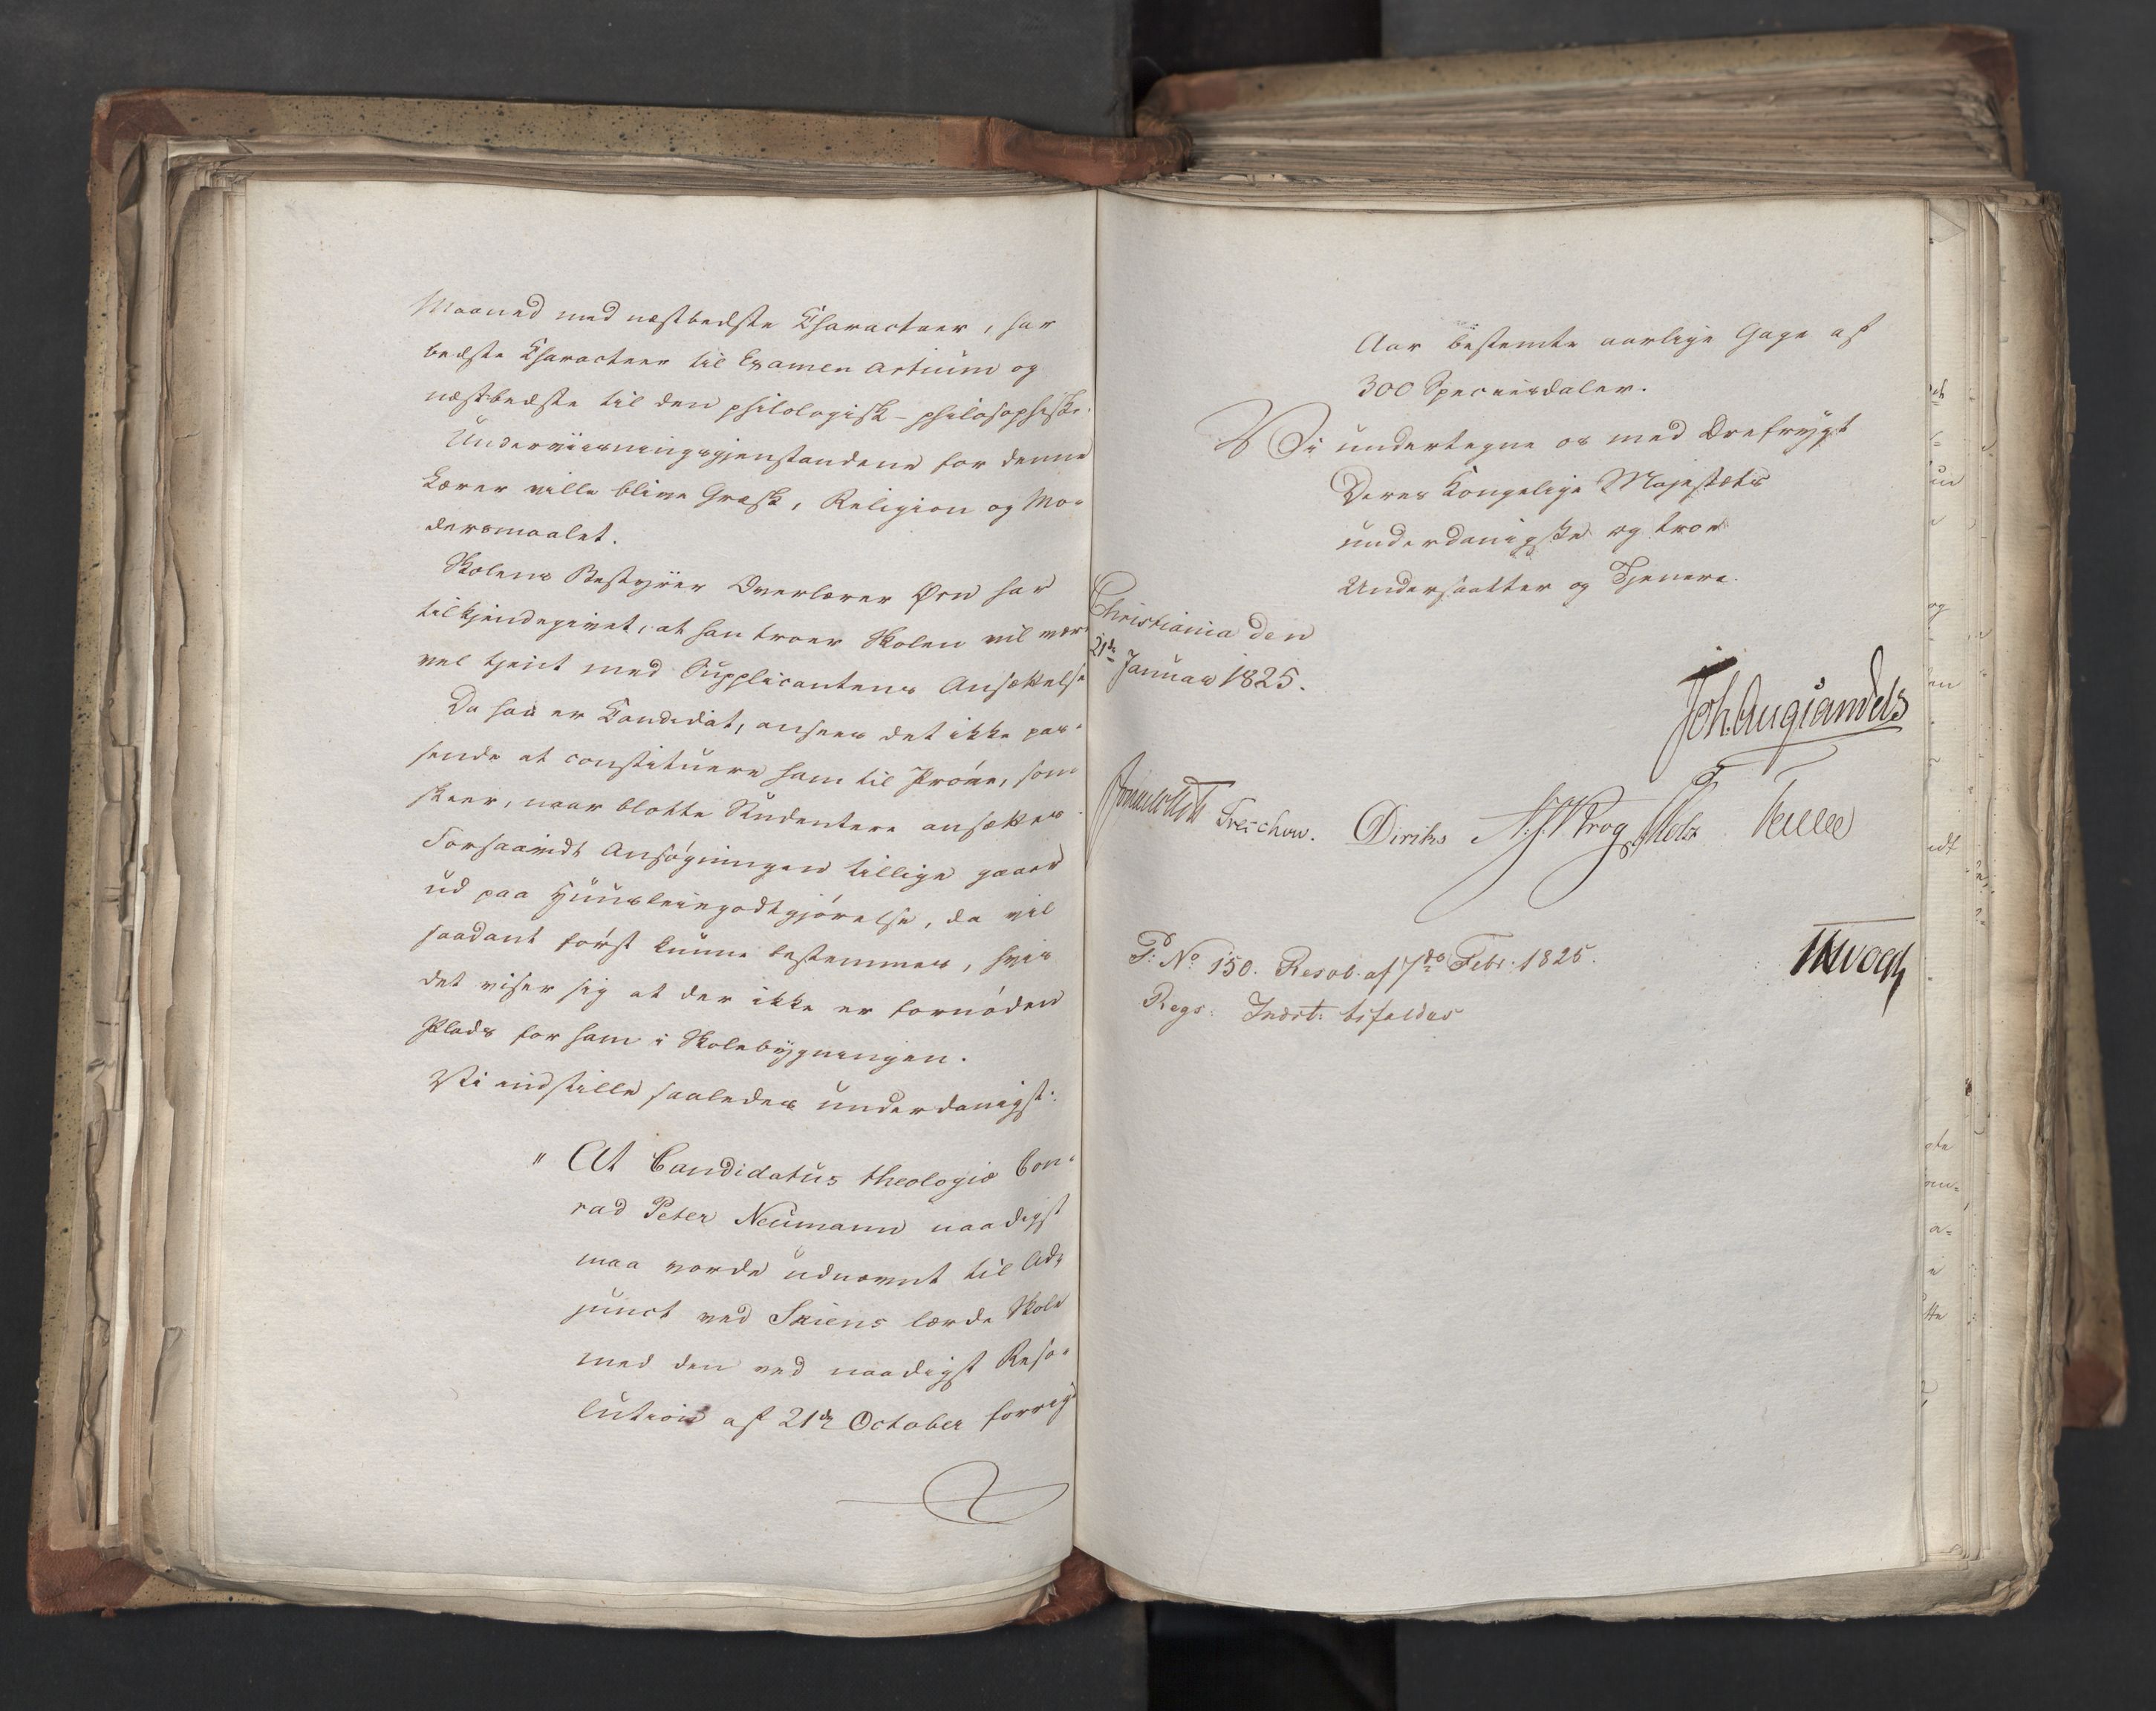 Maaned med næstbedste Characteer, har
bedste Characteer til Examen artium og
næstbedste til den philologisk-philosophiske.
Underviisningsgjenstandene for denne
Lærer ville blive Græsk, Religion og Mo-
dersmaalet.
Skolens Bestyrer Overlærer Ørn har
tilkjendegivet, at han troer Skolen vil være
vel tjent med Supplicantens Ansættelse
Da han er Candidat, ansees det ikke pas-
sende at constituere ham til Prøve, som
skeer, naar blotte Studentere ansættes.
Forsaavidt Ansøgningen tillige gaaer
ud paa Huusleiegodtgjørelse, da vil
saadant først kunne bestemmes, hvis
det viser sig at der ikke er fornøden
Plads for ham i Skolebygningen.
Vi indstille saaledes underdanigst:
" At Candidatus theologiæ Con-
rad Peter Neumann naadigst
maa vorde udnævnt til Ad-
junct ved Skiens lærde Skole
med den ved naadigst Reso-
lution af 21de October forrige
Aar bestemte aarlige Gage af
300 Speciesdaler.
Vi undertegne os med Ærefrygt
Deres Kongelige Majestæts
underdanigste og troe
Undersaatter og Tjenere.
Christiania den
21de Januar 1825.
Joh. Aug. Sandels
Treschow. Diriks Krog Motz
P: No 150. Resol. af 7de Febr: 1825.
Regs: Indst: bifaldes